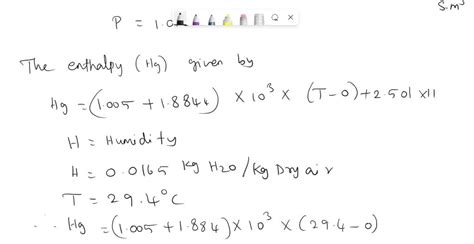 S.m³
P = 1.0
The enthalpy (Hg) given by
Hg = (1.005 + 1.884H) × 10³ × (T-0) + 2.501 × 11
H = Humidity
H = 0.0165 kg H2O/kg Dry air
T = 29.4°C
∴ Hg = (1.005 + 1.884) × 10³ × (29.4 - 0)